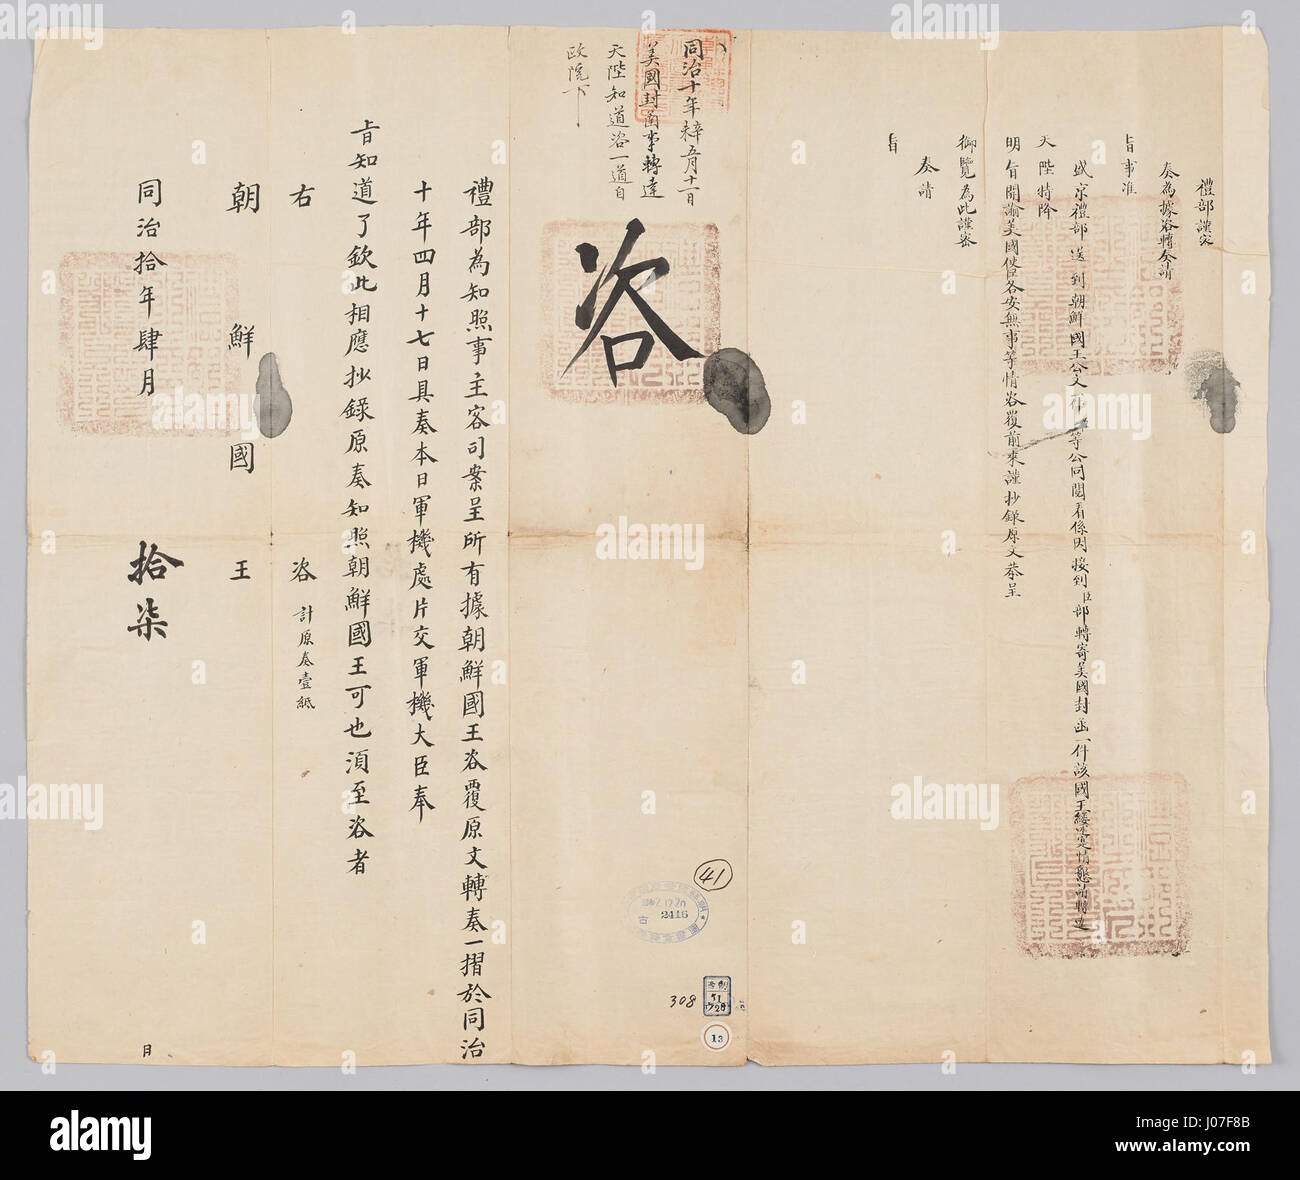 禮部謹
奏為據咨轉奏請
旨事准
盛京禮部送到朝鮮國王公文一件 等公同閱看係因接到臣部轉寄美國封函一件該國王縷 情懇請轉達
天陛特降
明旨開諭美國使臣各安無事等情咨覆前來謹抄錄原文恭呈
御覽為此謹
奏請
旨
同治十年辛未五月十一日
美國封函事轉達
天陛知道咨一道自
政院下
咨
禮部為知照事主客司案呈所有據朝鮮國王咨覆原文轉奏一摺於同治
十年四月十七日具奏本日軍機處片交軍機大臣奉
旨知道了欽此相應抄錄原奏知照朝鮮國王可也須至咨者
右 咨 計原奏壹紙
朝鮮國王
同治拾年肆月 拾柒 日
41
2416
308
13
alamy
alamy
Image ID: J07F8B
www.alamy.com